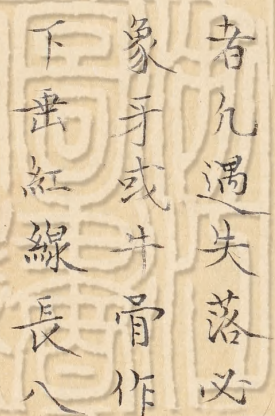 者凢遇失落必
象牙或牛骨作
下垂紅線長八